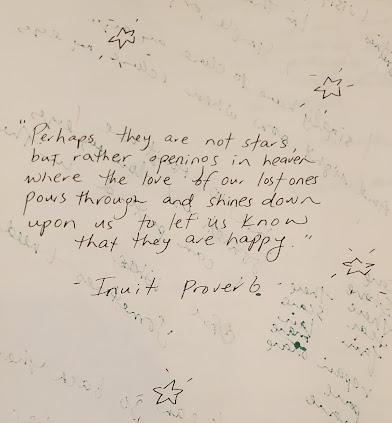 "Perhaps they are not stars,
but rather openings in heaven
where the love of our lost ones
pours through and shines down
upon us to let us know
that they are happy."
- Inuit Proverb.